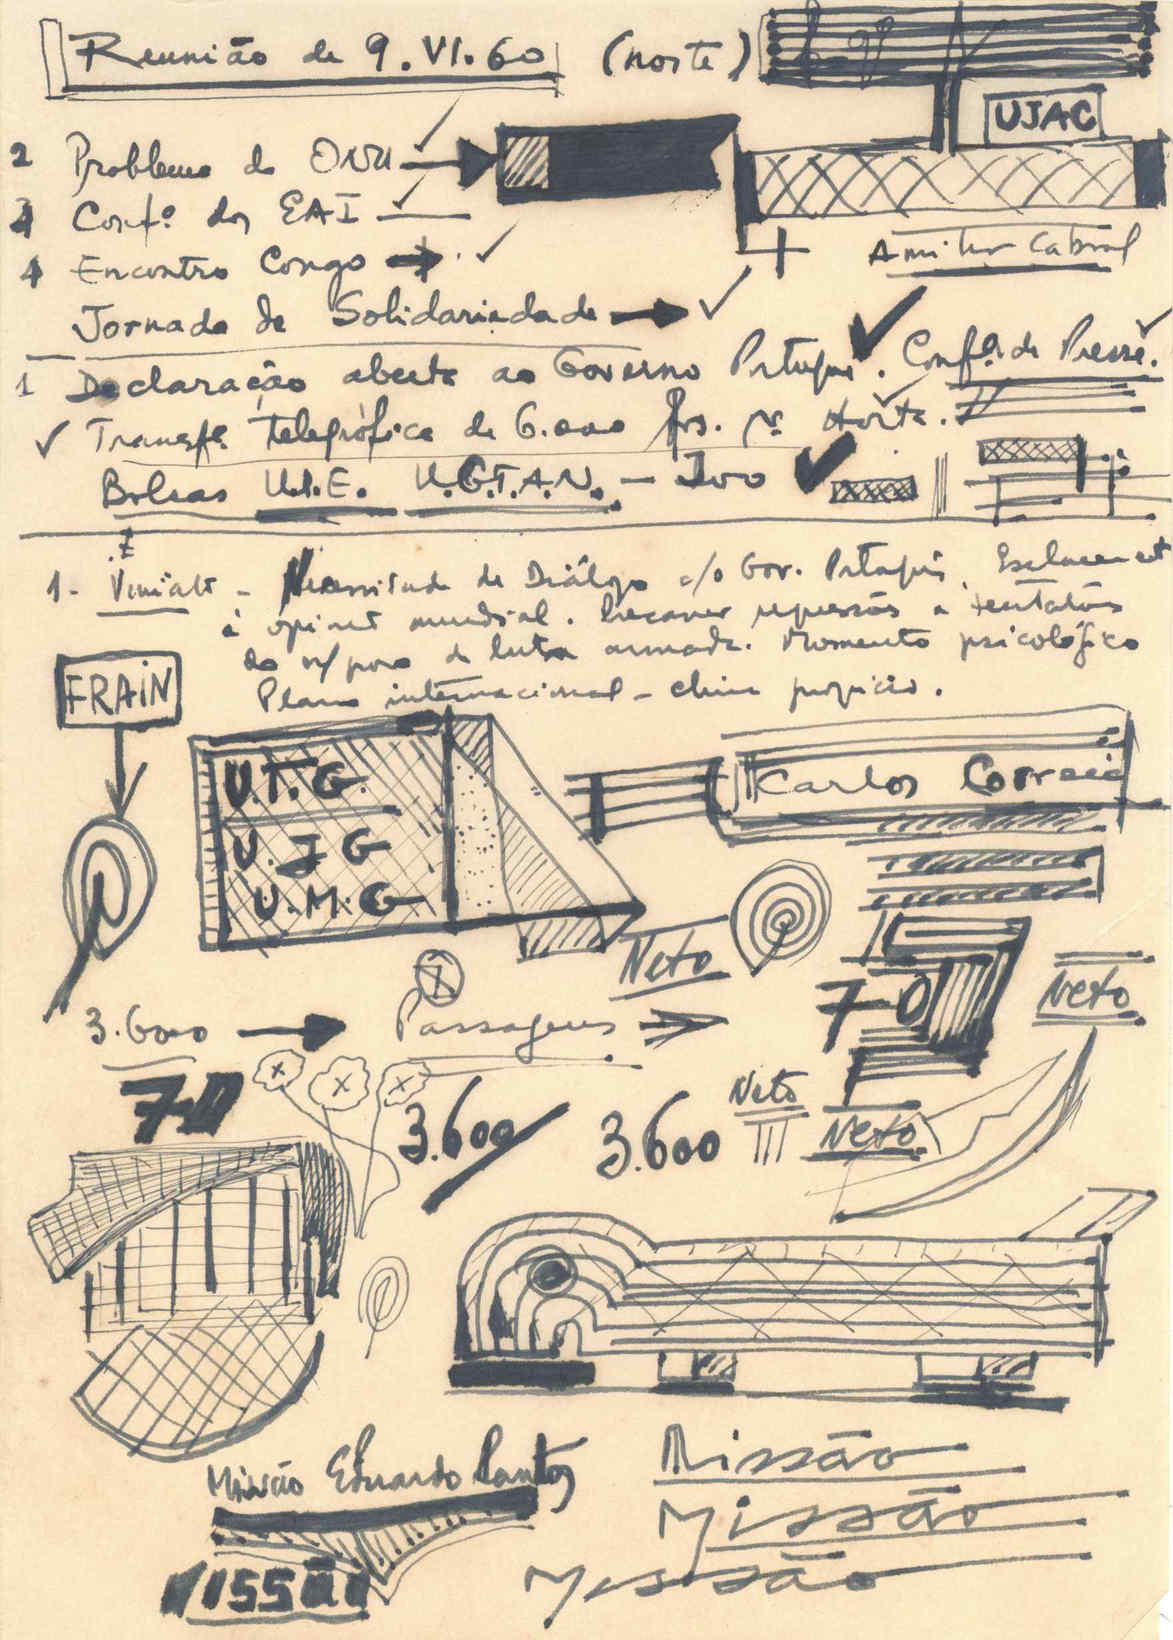 Reunião de 9.VI.60 (norte)
UJAC
2 Problema da ONU
3 Confª. dos EAI
+ Amílcar Cabral
4 Encontro Congo
Jornada de Solidariedade
1 Declaração aberta ao Governo Português. Confª. de Presse.
Transfª. telegráfica de 6.000 frs. pª Horta.
Bolsas U.I.E. U.G.T.A.N. - Ivo
1- Viriato - Necessidade de Diálogo c/o Gov. Português. Esclarecimt
à opinião mundial. Precaver repressões e tentativas
do n/povo de luta armada. Momento psicológico
Plano internacional - clima propício.
FRAIN
U.T.G.
U.J.G
U.M.G
Carlos Correia
Neto
7-0
Neto
3.6000
Passagens
7-0
3.600
3.600
Neto
III
Neto
Missão Eduardo Santos
Missão
Missão
Missão
Missão